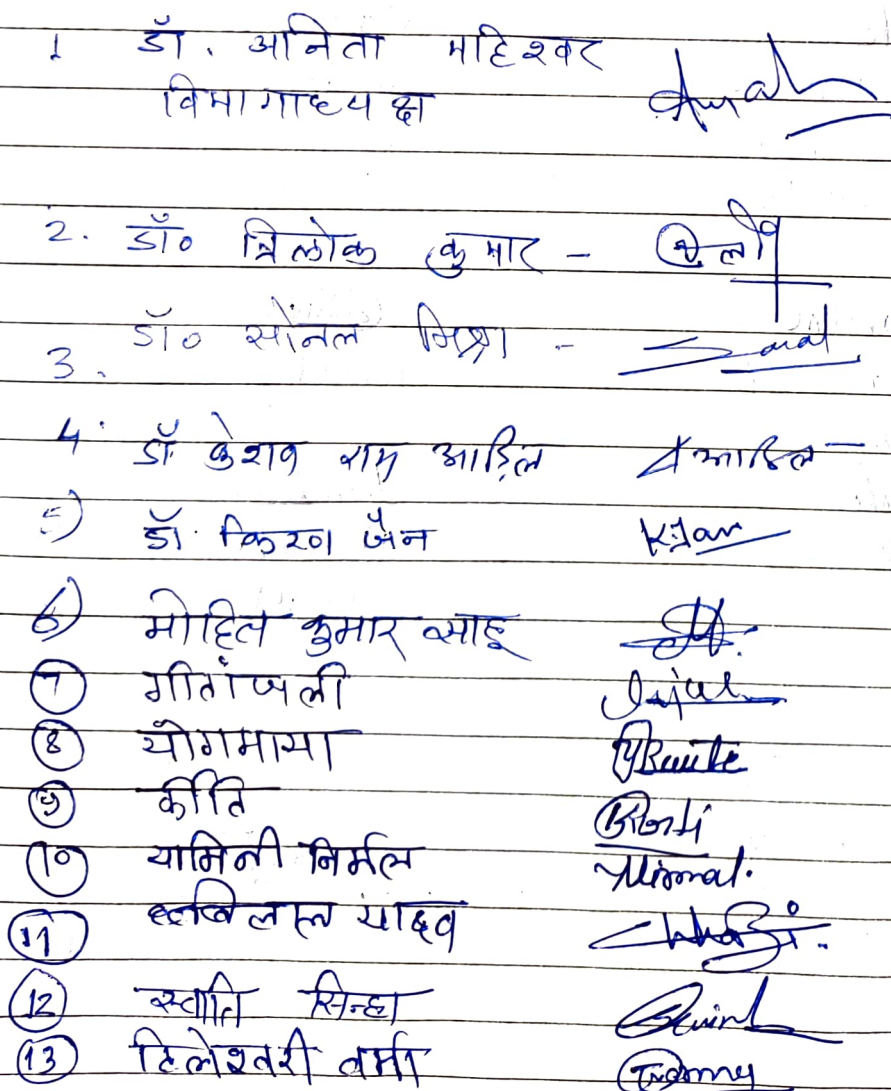 1 डॉ. अनिता महिश्वर
विभागाध्यक्ष
2. डॉ० त्रिलोक कुमार -
3. डॉ० सोनल मिश्रा - Sonal
4. डॉ. केशव राम आड़िल आडिल
5) डॉ. किरण जैन K.Jain
6) मोहित कुमार साहू
7 गीतांजली
8 योगमाया
9 कीर्ति Kirti
10 यामिनी निर्मल Nirmal.
11 छबिलाल यादव
12 स्वाति सिन्हा
13 टिलेश्वरी वर्मा